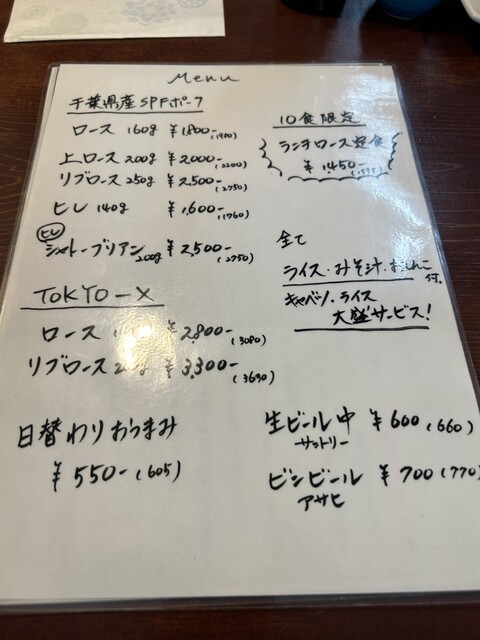 Menu
千葉県産SPFポーク
ロース 160g ¥1,800- (1980)
上ロース 200g ¥2,000- (2200)
リブロース 250g ¥2,500- (2750)
ヒレ 140g ¥1,600- (1760)
ヒレ
シャトーブリアン 200g ¥2,500- (2750)
TOKYO-X
ロース ¥2,800- (3080)
リブロース ¥3,300- (3630)
日替わりおつまみ
¥550- (605)
10食限定
ランチロース定食
¥1,450- (1595)
全て
ライス・みそ汁・おしんこ付.
キャベツ・ライス
大盛サービス!
生ビール中 ¥600 (660)
サントリー
ビンビール ¥700 (770)
アサヒ